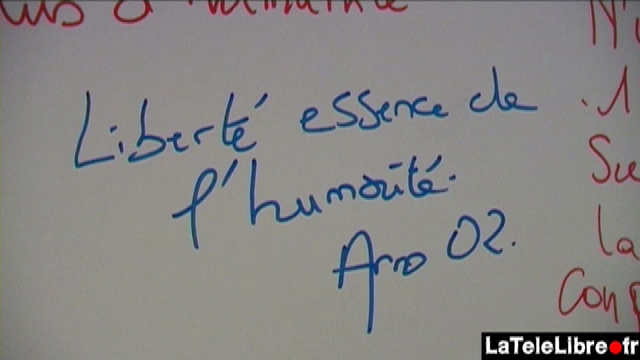 d'humanité
Liberté essence de
l'humanité.
Arno 02.
.1
Su
la
Conp
LaTeleLibre.fr